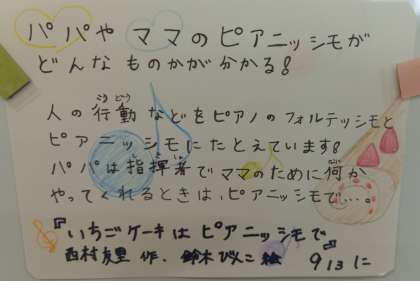 パパや ママのピアニッシモが
どんなものかが分かる!
人の行動などをピアノのフォルテッシモと
ピアニッシモにたとえています!
パパは指揮者でママのために何か
やってくれるときは、ピアニッシモで…。
『いちごケーキはピアニッシモで』
西村友里 作. 鈴木びんこ 絵 913に